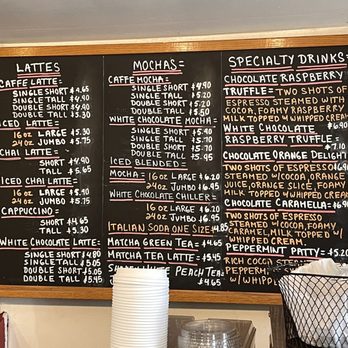 LATTES
CAFFE LATTE=
SINGLE SHORT $4.65
SINGLE TALL $4.90
DOUBLE SHORT $4.90
DOUBLE TALL $5.30
ICED LATTE=
16oz LARGE $5.30
24oz JUMBO $5.75
CHAI LATTE=
SHORT $4.90
TALL $5.45
ICED CHAI LATTE=
16oz LARGE $5.45
24oz JUMBO $5.95
CAPPUCCINO=
SHORT $4.65
TALL $5.30
WHITE CHOCOLATE LATTE=
SINGLE SHORT $4.80
SINGLE TALL $5.05
DOUBLE SHORT $5.05
DOUBLE TALL $5.45
MOCHAS=
CAFFE MOCHA=
SINGLE SHORT $4.90
SINGLE TALL $5.20
DOUBLE SHORT $5.20
DOUBLE TALL $5.50
WHITE CHOCOLATE MOCHA=
SINGLE SHORT
SINGLE TALL
DOUBLE SHORT
DOUBLE TALL $5.95
ICED BLENDED=
MOCHA= 16oz LARGE $6.20
24oz JUMBO $6.95
WHITE CHOCOLATE CHILLER=
16oz LARGE $6.20
24oz JUMBO $6.95
ITALIAN SODA ONE SIZE= $4.85
MATCHA GREEN TEA= $4.65
MATCHA TEA LATTE= $5.45
WHITE PEACH TEA=
$4.65
SPECIALTY DRINKS=
CHOCOLATE RASPBERRY
TRUFFLE= TWO SHOTS OF
ESPRESSO STEAMED WITH
COCOA, FOAMY RASPBERRY
MILK TOPPED w/WHIPPED CREAM.
WHITE CHOCOLATE $6.90
RASPBERRY TRUFFLE=
$7.10
CHOCOLATE ORANGE DELIGHT
TWO SHOTS OF ESPRESSO $6.90
STEAMED w/COCOA, ORANGE
JUICE, ORANGE SLICE, FOAMY
MILK TOPPED w/WHIPPED CREAM
CHOCOLATE CARAMELLA= $6.90
TWO SHOTS OF ESPRESSO
STEAMED w/COCOA, FOAMY
CARAMEL MILK TOPPED w/
WHIPPED CREAM.
PEPPERMINT PATTY= $5.20
RICH COCOA STEAMED
PEPPERMINT
w/WHIPP